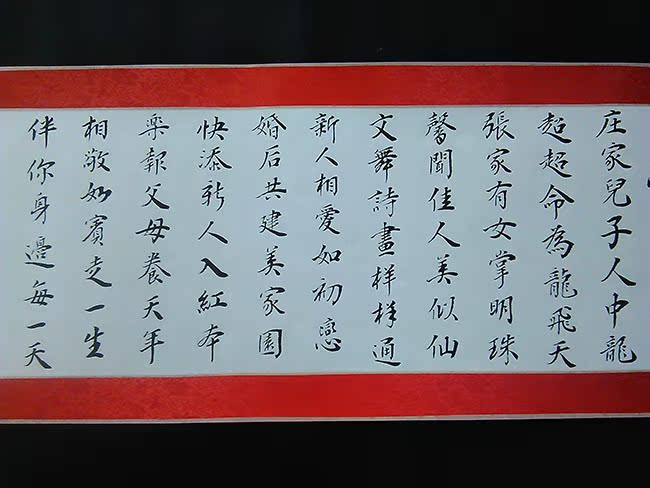 庄家兒子人中龍
超超命為龍飛天
張家有女掌明珠
馨聞佳人美似仙
文舞詩畫样样通
新人相愛如初戀
婚后共建美家園
快添新人入紅本
樂報父母養天年
相敬如賓走一生
伴你身邊每一天